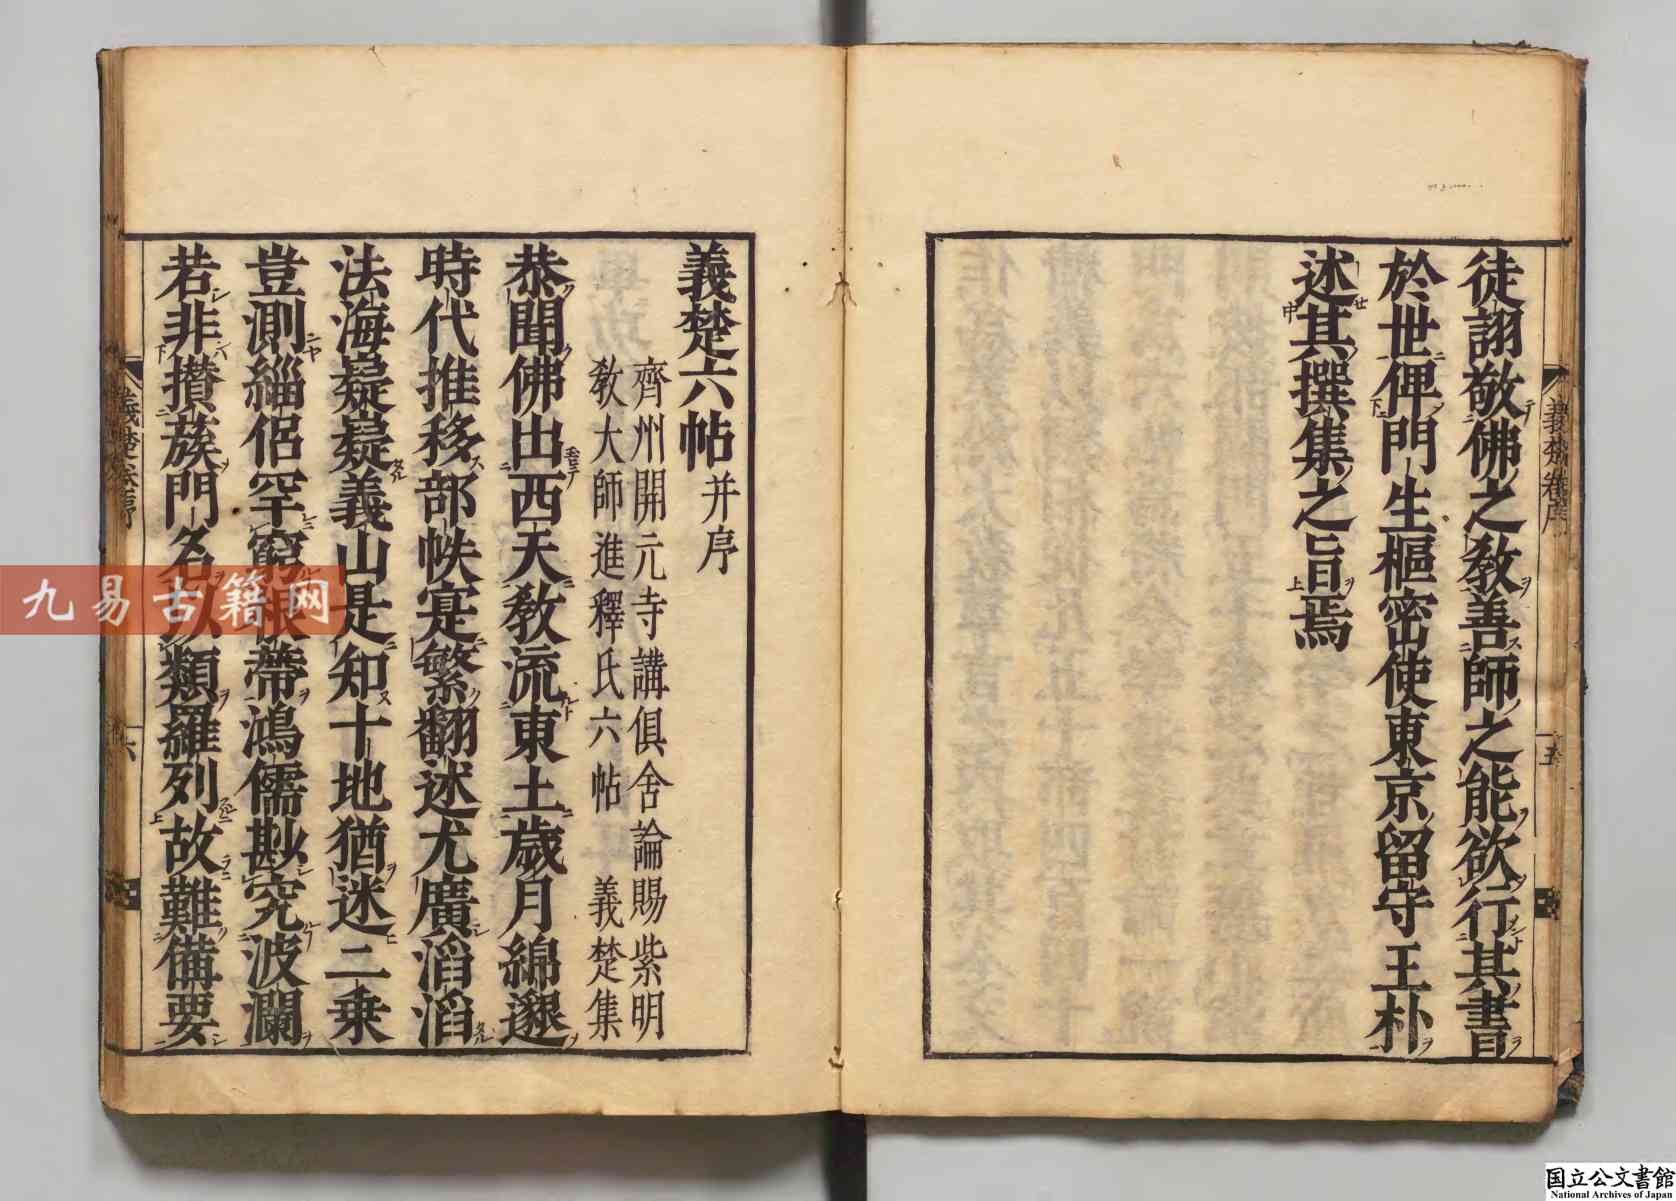 徒詡敬佛之教善師之能欲行其書
於世俾門生樞密使東京留守王朴
述其撰集之旨焉
義楚卷序
五
義楚六帖并序
齊州開元寺講俱舍論賜紫明
教大師進釋氏六帖 義楚集
恭聞佛出西天教流東土歲月綿邈
時代推移部帙寔繁翻述尤廣滔滔
法海嶷嶷義山是知十地猶迷二乗
豈測緇侣罕窮根蔕鴻儒尠究波瀾
若非攅蔟門名以類羅列故難備要
義楚卷序
六
九易古籍网
国立公文書館
National Archives of Japan